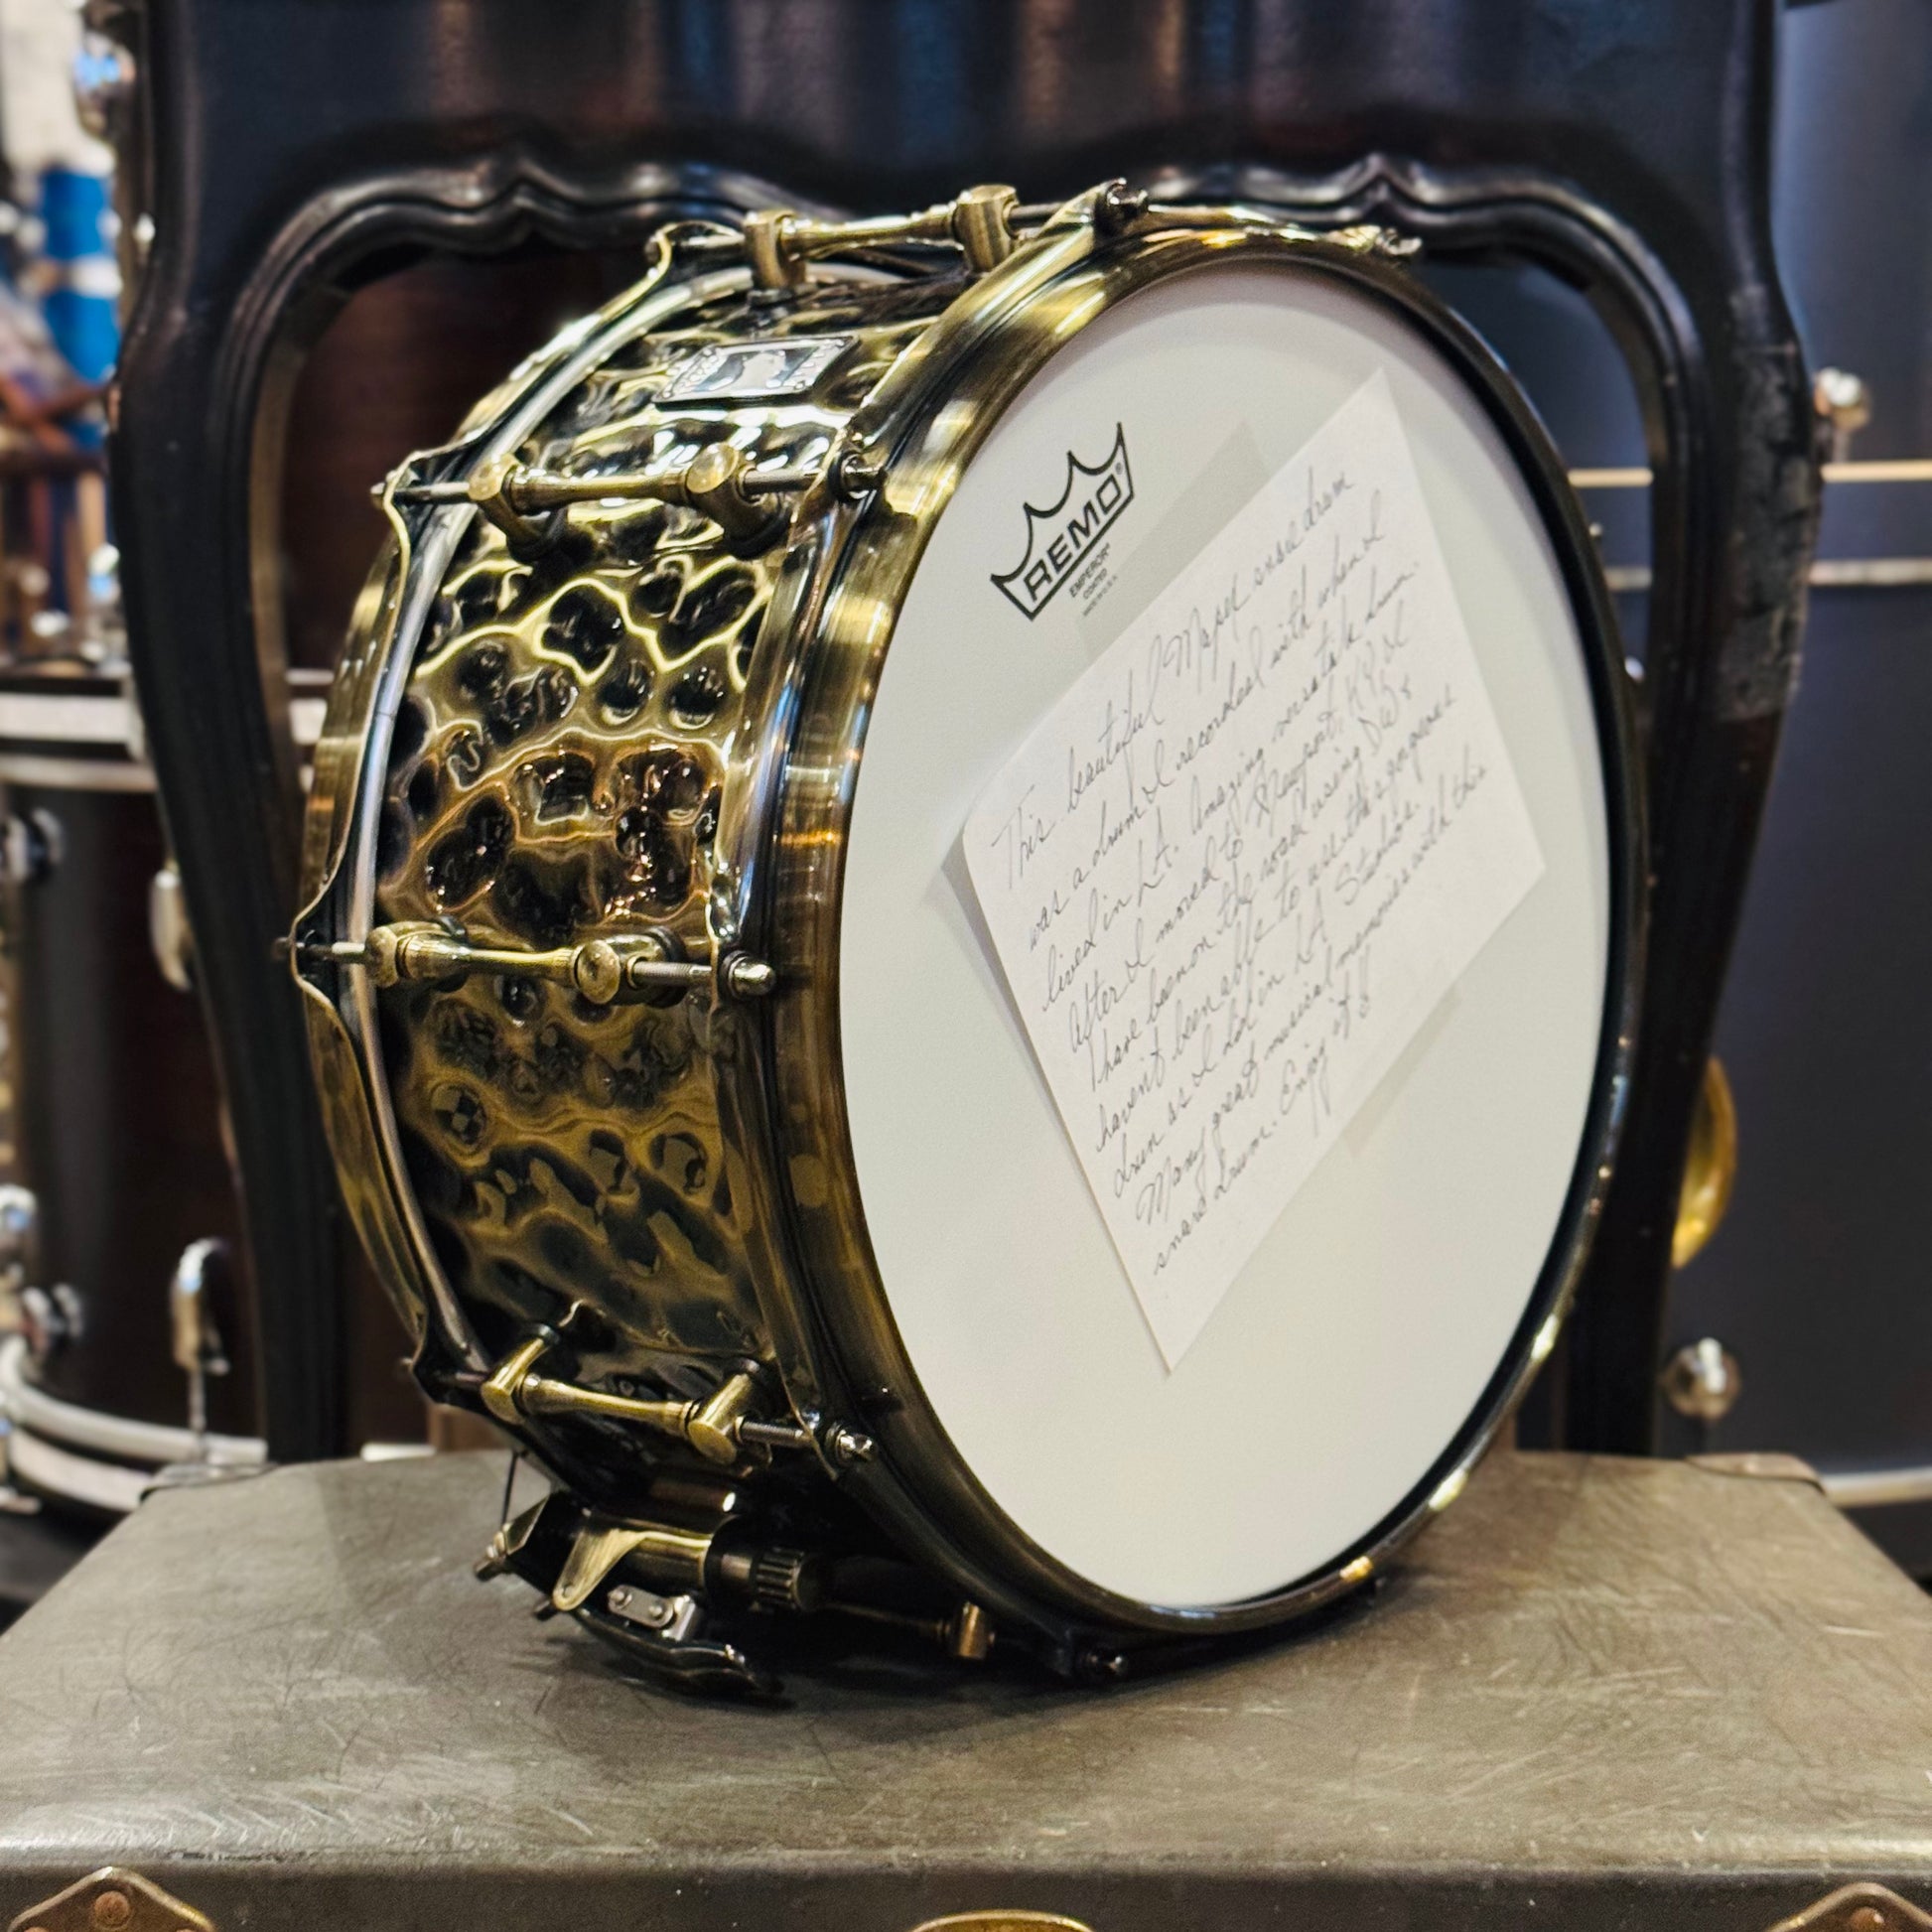 REMO®
EMPEROR®
COATED
MADE IN U.S.A.
This beautiful Mapex snare drum
was a drum I recorded with when I
lived in LA. Amazing versatile drum.
After I moved to Newport, KY, I
have been on the road using DW &
haven't been able to use this gorgeous
drum as I did in LA Studios.
Many great musical memories with this
snare drum. Enjoy it!